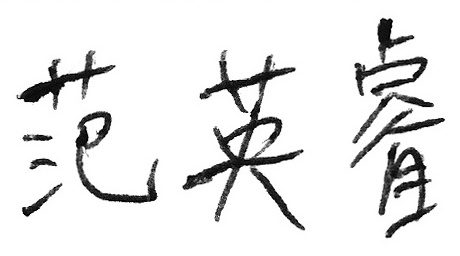 范英睿